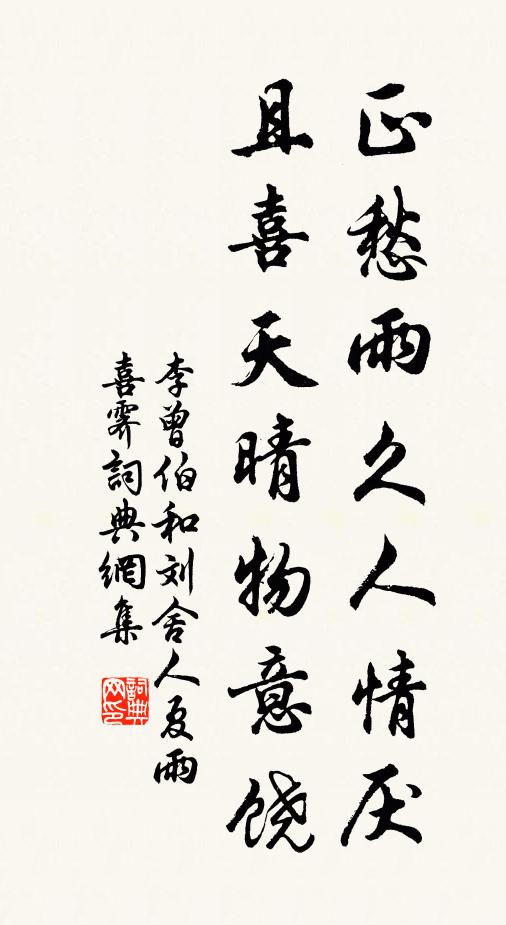 正愁雨久人情厌
且喜天晴物意饶
李曾伯和刘舍人夏雨
喜霁詞典網集
詞典
网印